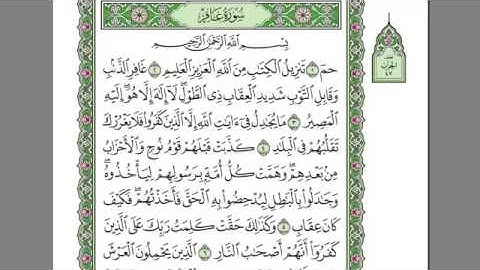 سُورَةُ غَافِرٍ
بِسْمِ اللَّهِ الرَّحْمَٰنِ الرَّحِيمِ
حمٓ ١ تَنزِيلُ الْكِتَابِ مِنَ اللَّهِ الْعَزِيزِ الْعَلِيمِ ٢ غَافِرِ الذَّنبِ
وَقَابِلِ التَّوْبِ شَدِيدِ الْعِقَابِ ذِي الطَّوْلِ لَا إِلَٰهَ إِلَّا هُوَ إِلَيْهِ
الْمَصِيرُ ٣ مَا يُجَادِلُ فِي آيَاتِ اللَّهِ إِلَّا الَّذِينَ كَفَرُوا فَلَا يَغْرُرْكَ
تَقَلُّبُهُمْ فِي الْبِلَادِ ٤ كَذَّبَتْ قَبْلَهُمْ قَوْمُ نُوحٍ وَالْأَحْزَابُ
مِن بَعْدِهِمْ وَهَمَّتْ كُلُّ أُمَّةٍ بِرَسُولِهِمْ لِيَأْخُذُوهُ
وَجَادَلُوا بِالْبَاطِلِ لِيُدْحِضُوا بِهِ الْحَقَّ فَأَخَذْتُهُمْ فَكَيْفَ
كَانَ عِقَابِ ٥ وَكَذَٰلِكَ حَقَّتْ كَلِمَتُ رَبِّكَ عَلَى الَّذِينَ
كَفَرُوا أَنَّهُمْ أَصْحَابُ النَّارِ ٦ الَّذِينَ يَحْمِلُونَ الْعَرْشَ